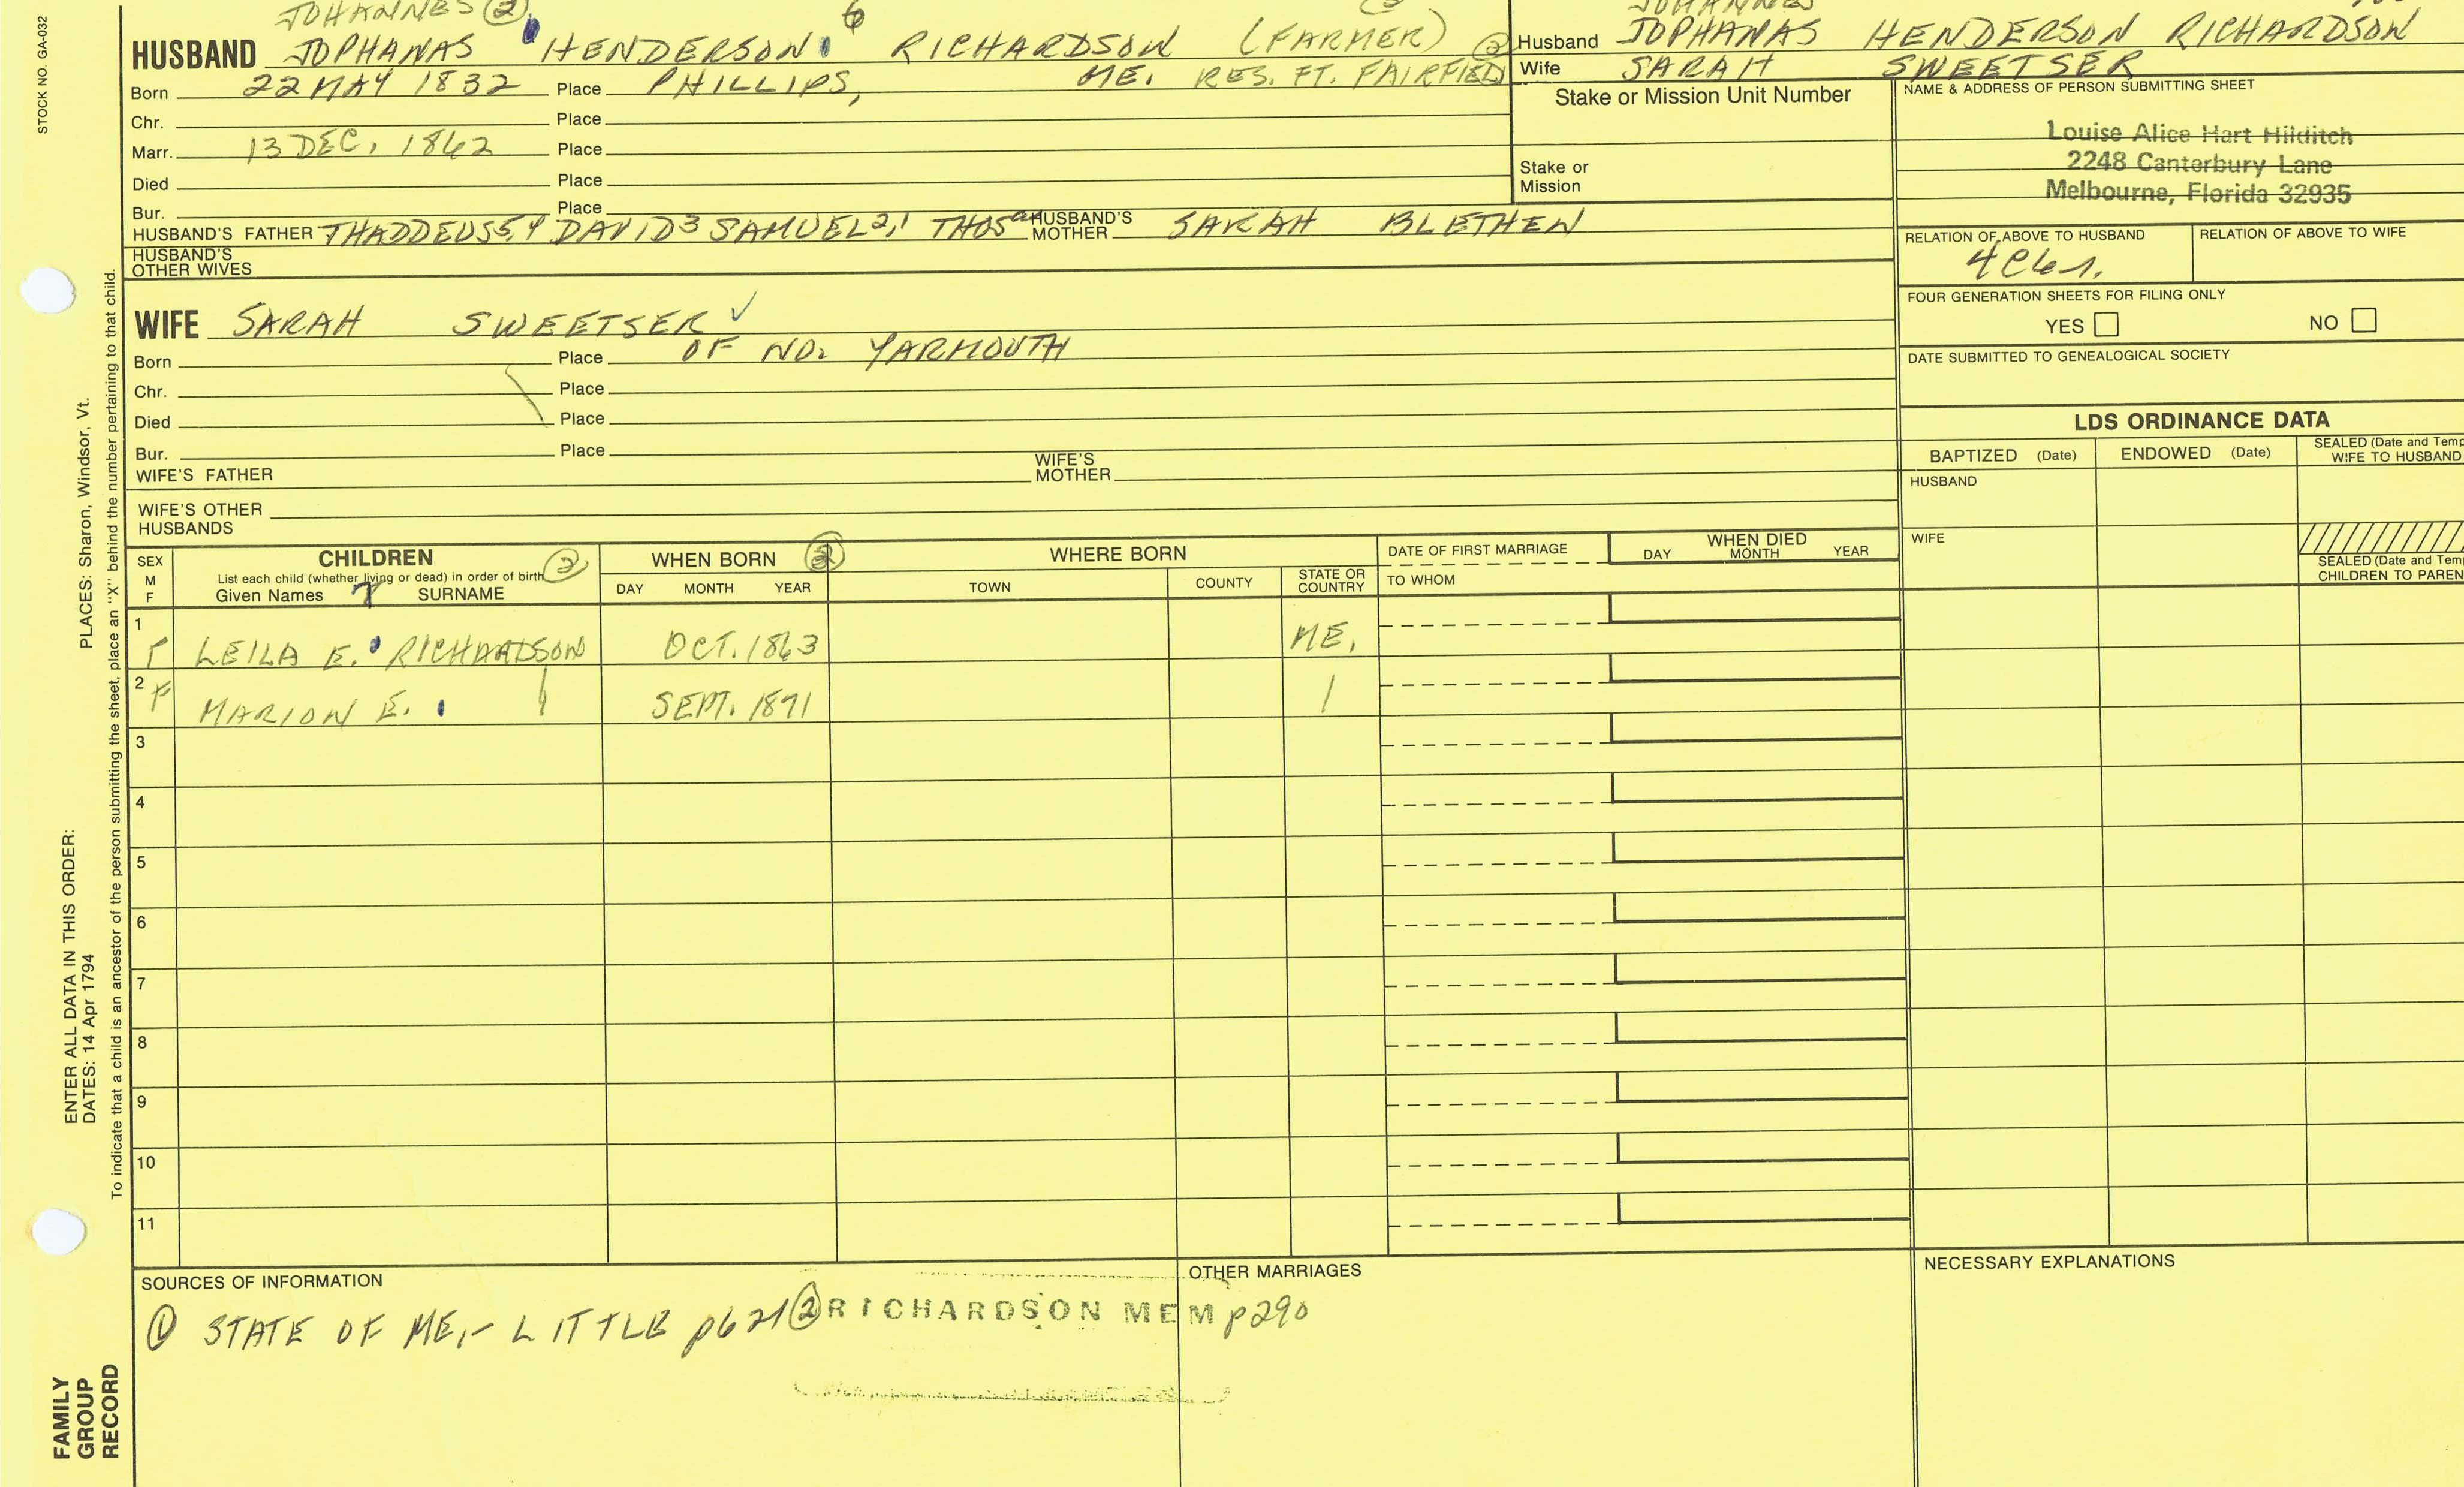 STOCK NO. GA-032
JOHANNES (2) 6
HUSBAND JOPHANAS HENDERSON RICHARDSON (FARMER) (2)
Born 22 MAY 1832 Place PHILLIPS, ME. RES. FT. FAIRFIELD
Chr. Place
Marr. 13 DEC, 1862 Place
Died Place
Bur. Place
HUSBAND'S FATHER THADDEUS5,4 DAVID3 SAMUEL2,1 THOS HUSBAND'S MOTHER SARAH BLETHEN
HUSBAND'S OTHER WIVES
JOHANNES
Husband JOPHANAS HENDERSON RICHARDSON
Wife SARAH SWEETSER
Stake or Mission Unit Number
Stake or
Mission
NAME & ADDRESS OF PERSON SUBMITTING SHEET
Louise Alice Hart Hilditch
2248 Canterbury Lane
Melbourne, Florida 32935
RELATION OF ABOVE TO HUSBAND RELATION OF ABOVE TO WIFE
FOUR GENERATION SHEETS FOR FILING ONLY
YES NO
DATE SUBMITTED TO GENEALOGICAL SOCIETY
WIFE SARAH SWEETSER ✓
Born Place OF NO. YARMOUTH
Chr. Place
Died Place
Bur. Place
WIFE'S FATHER WIFE'S MOTHER
WIFE'S OTHER HUSBANDS
LDS ORDINANCE DATA
BAPTIZED (Date) ENDOWED (Date) SEALED (Date and Temp
WIFE TO HUSBAND
HUSBAND
WIFE
SEALED (Date and Tem
CHILDREN TO PAREN
SEX
M
F
CHILDREN (2)
List each child (whether living or dead) in order of birth
Given Names 7 SURNAME
WHEN BORN (2)
DAY MONTH YEAR
WHERE BORN
TOWN COUNTY STATE OR COUNTRY
DATE OF FIRST MARRIAGE
TO WHOM
WHEN DIED
DAY MONTH YEAR
1 F LEILA E. RICHARDSON OCT. 1863 ME.
2 F MARION E. SEPT. 1871
3
4
5
6
7
8
9
10
11
SOURCES OF INFORMATION
(1) STATE OF ME,- LITTLE p621 (2) RICHARDSON MEM p290
OTHER MARRIAGES
NECESSARY EXPLANATIONS
ENTER ALL DATA IN THIS ORDER:
DATES: 14 Apr 1794 PLACES: Sharon, Windsor, Vt.
To indicate that a child is an ancestor of the person submitting the sheet, place an "X" behind the number pertaining to that child.
FAMILY
GROUP
RECORD